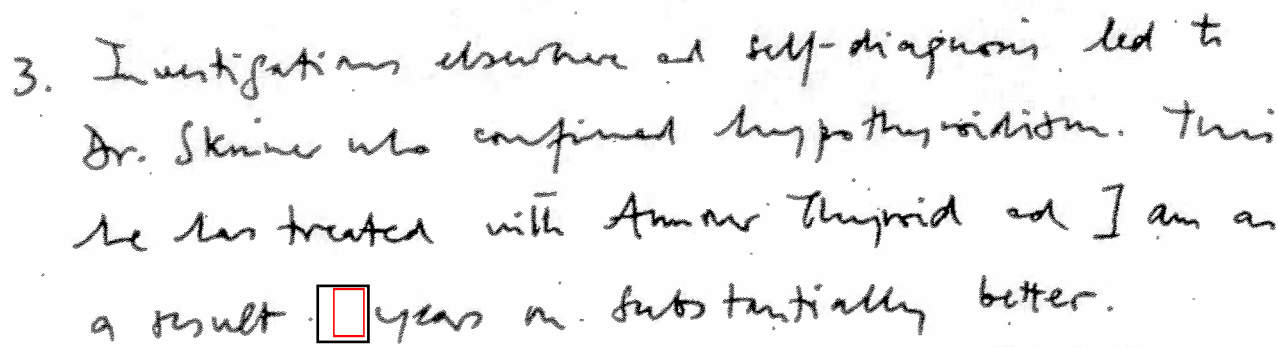 3. Investigations elsewhere and self-diagnosis led to
Dr. Skinner who confirmed hypothyroidism. This
he has treated with Armour Thyroid and I am as
a result years on substantially better.